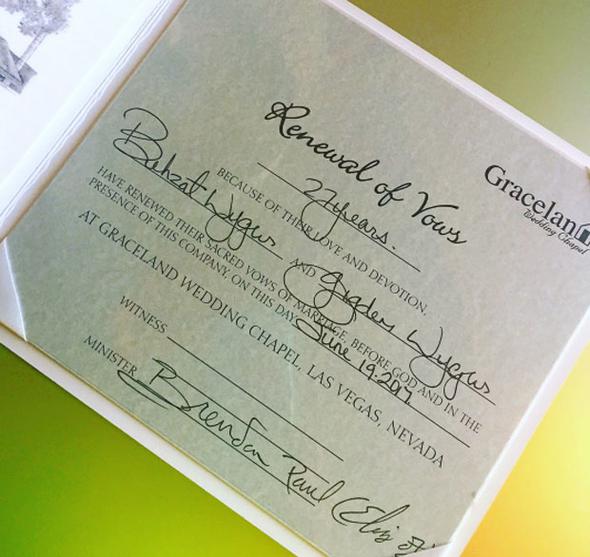 Graceland
Wedding Chapel
Renewal of Vows
27 years.
BECAUSE OF THEIR LOVE AND DEVOTION,
Wygus AND Wygus
HAVE RENEWED THEIR SACRED VOWS OF MARRIAGE, BEFORE GOD AND IN THE
PRESENCE OF THIS COMPANY, ON THIS DAY June 19.2017
AT GRACELAND WEDDING CHAPEL, LAS VEGAS, NEVADA
WITNESS
MINISTER Brendan Paul (Elvis